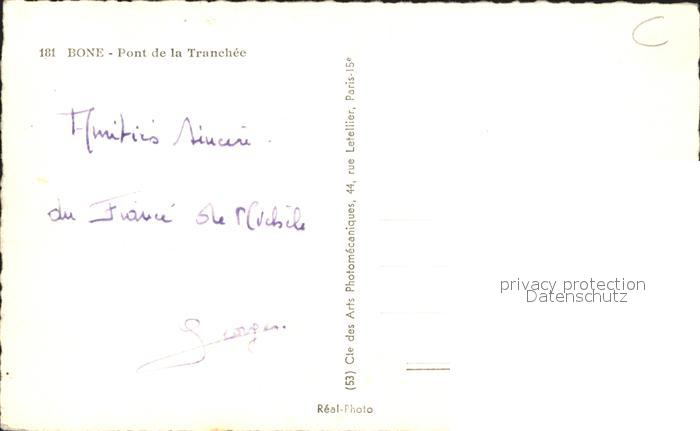 181 BONE - Pont de la Tranchée
Amitiés sincère.
du Fiancé de
Georges.
(53) Cie des Arts Photomécaniques, 44, rue Letellier, Paris-15e
C
privacy protection
Datenschutz
Réal-Photo